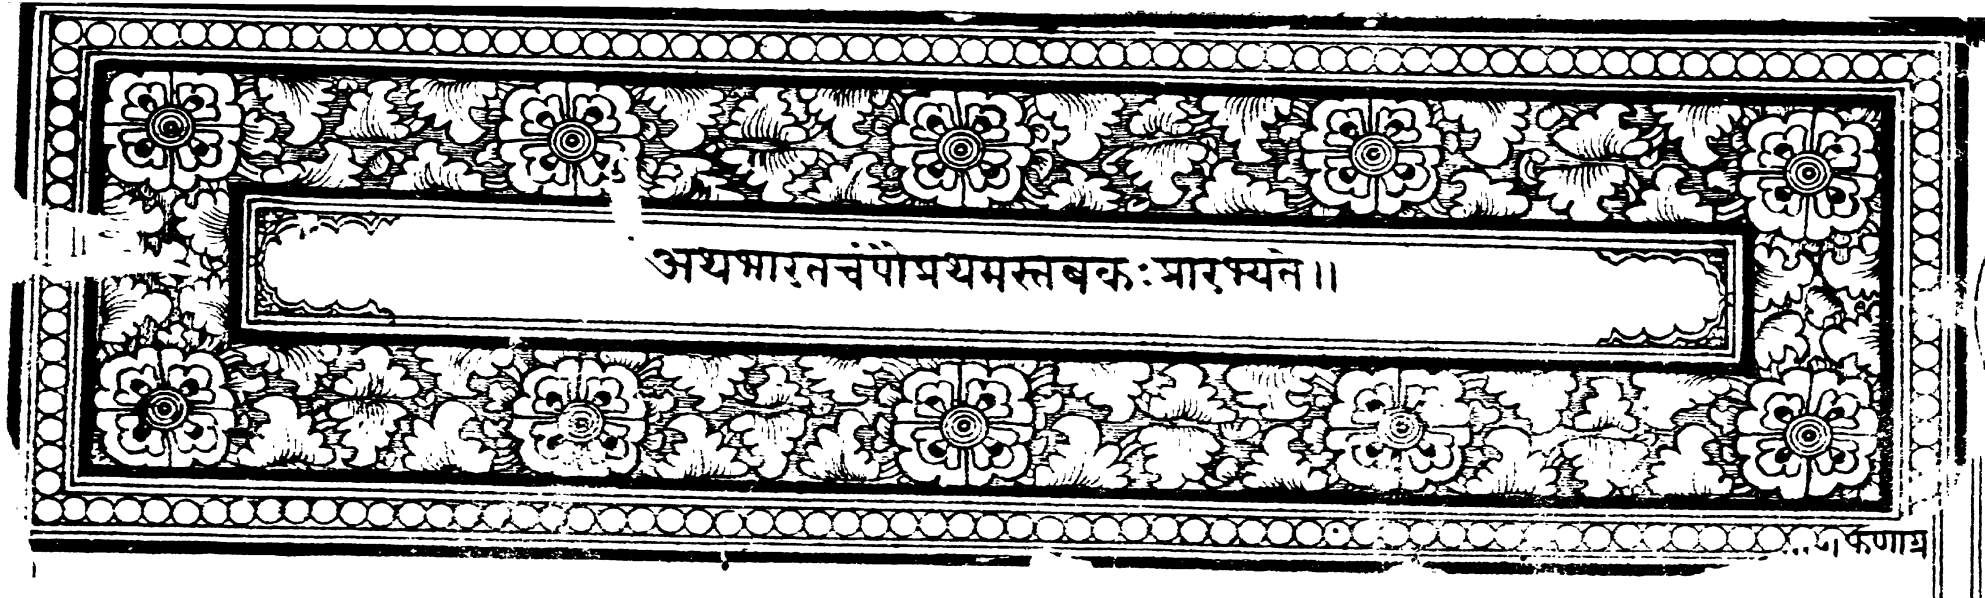 अथभारतचंपौप्रथमस्तबकःप्रारभ्यते॥
फणाग्र